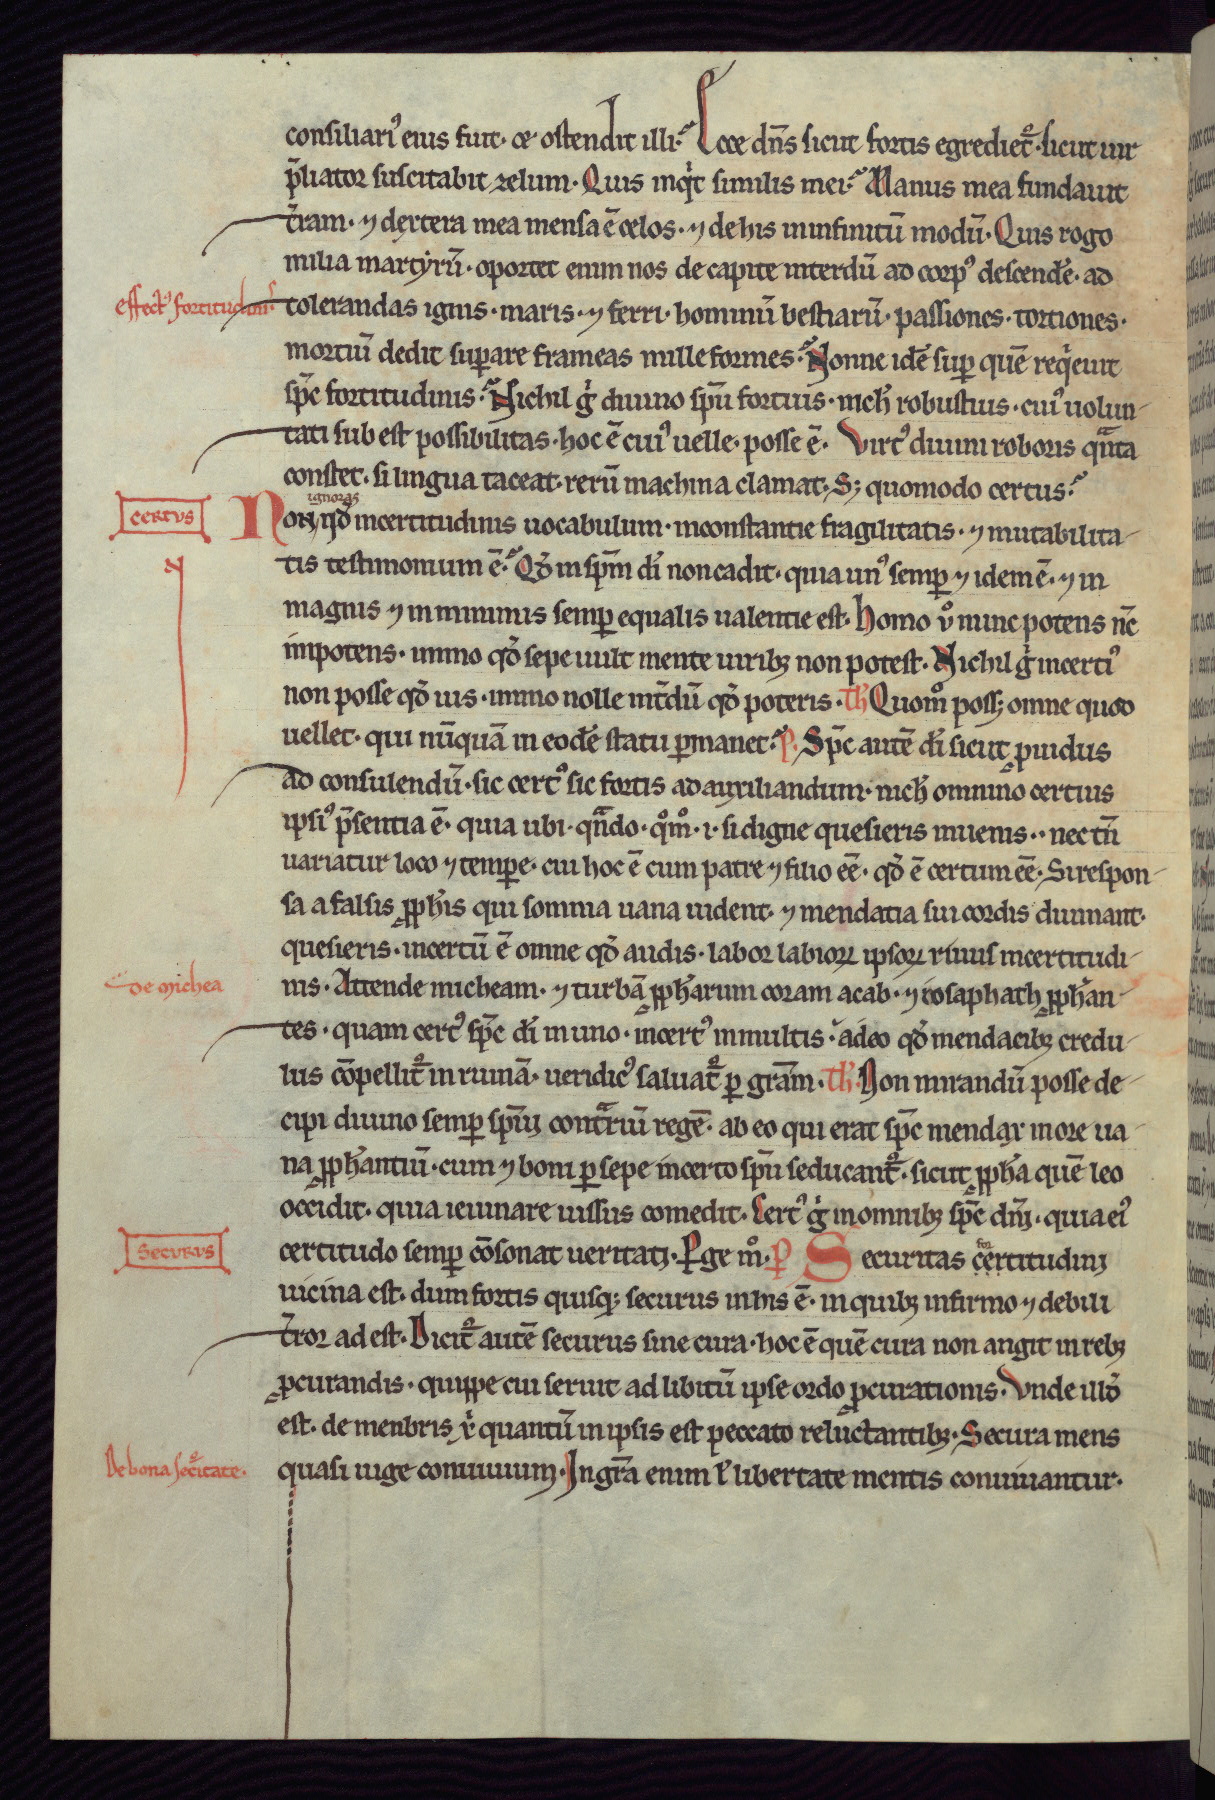 consiliari᷒ eius fuit· & ostendit illi· Ecce dn̄s sicut fortis egrediet᷒· sicut uir
p̄liator suscitabit zelum· Quis inq̇t similis mei· Manus mea fundauit
t̄ram· ⁊ dextera mea mensa ē celos· ⁊ de his in infinitū modū· Quis rogo
milia martyrū· oportet enim nos de capite interdū ad corp᷒ descend̄e· ad
effect᷒ fortitudinis· tolerandas ignis· maris· ⁊ ferri· hominū bestiarū· passiones· tortiones·
mortiū dedit sup̄are frameas milleformes· Nonne idē sup̄ quē req̇euit
sp̄c fortitudinis· Nichil g̊ diuino spū fortius· nich̄ robustius· cui᷒ uolun-
tati sub est possibilitas· hoc ē cui᷒ uelle· posse ē· Virt᷒ diuini roboris qn̄ta
constet· si lingua taceat· rerū machina clamat· S; quomodo certus·
certvs
ignoras
Non qd̄ incertitudinis uocabulum· inconstantie fragilitatis· ⁊ mutabilita-
tis testimonium ē· Qd̄ in sp̄m dī non cadit· quia un᷒ semp̄ ⁊ idem ē· ⁊ in
magnis ⁊ in minimis semp̄ equalis ualentie est· Homo ů nunc potens nc̄
impotens· immo qd̄ sepe uult mente uirib; non potest· Nichil g̊ incerti᷒
non posse qd̄ uis· immo nolle int̄dū qd̄ poteris· Th̄ Quom̊ poss; omne quod
uellet· qui nūquā in eodē statu p̄manet· P̄· Sp̄c autē dī sicut p̄uidus
ad consulendū· sic cert᷒ sic fortis ad auxiliandum· nich̄ omnino certius
ipsi᷒ p̄sentia ē· quia ubi· qn̄do· q̊m̊· i· si digne quesieris inuenis·· nec tn̄
uariatur loco ⁊ temp̄e· cui hoc ē cum patre ⁊ filio eē· qd̄ ē certum eē· Si respon-
sa a falsis p̄ph̄is qui somnia uana uident· ⁊ mendatia sui cordis diuinant·
quesieris· incertū ē omne qd̄ audis· labor labioꝝ ipsoꝝ riuus incertitudi-
De michea
nis· Attende micheam· ⁊ turbā p̄ph̄arum coram acab· ⁊ iosaphath p̄ph̄an-
tes· quam cert᷒ sp̄c dī in uno· incert᷒ in multis· adeo qd̄ mendacib; credu-
lus cōpellit᷒ in ruinā· ueridic᷒ saluat᷒ p̄ gram̄· Th̄· Non mirandū posse de-
cipi diuino semp̄ sp̄ui contrariū regē· ab eo qui erat sp̄c mendax in ore ua
na p̄ph̄antiū· cum ⁊ boni p̄sepe incerto spū seducant᷒· sicut p̄ph̄a quē leo
occidit· quia ieiunare iussus comedit· Cert᷒ g̊ in omnib; sp̄c dn̄i· quia ei᷒
Securus
certitudo semp̄ cōsonat ueritati· P̄ge m̊· P̄ Securitas certitudini
for
uicina est· dum fortis quisq; securus in his ē· in quib; infirmo ⁊ debili
t̄ror ad est· Dicit᷒ autē securus sine cura· hoc ē quē cura non angit in reb;
p̄curandis· quippe cui seruit ad libitū ipse ordo p̄curationis· Vnde illd̄
est· de menbris χ̇ quantū in ipsis est peccato reluctantib;· Secura mens
De bona secūitate·
quasi iuge conuiuium· In gr̄a enim ł libertate mentis conuiuantur·